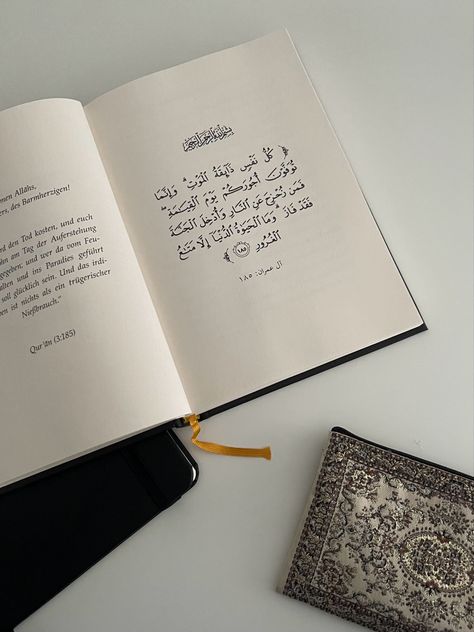 Allāhs,
des Barmherzigen!
den Tod kosten, und euch
am Tag der Auferstehung
gegeben, und wer da vom Feu-
ins Paradies geführt
soll glücklich sein. Und das irdi-
ist nichts als ein trügerischer
Nießbrauch.“
Qur'ān (3:185)
بِسْمِ اللَّهِ الرَّحْمَٰنِ الرَّحِيمِ
﴿ كُلُّ نَفْسٍ ذَآئِقَةُ ٱلْمَوْتِ ۗ وَإِنَّمَا
تُوَفَّوْنَ أُجُورَكُمْ يَوْمَ ٱلْقِيَٰمَةِ ۖ
فَمَن زُحْزِحَ عَنِ ٱلنَّارِ وَأُدْخِلَ ٱلْجَنَّةَ
فَقَدْ فَازَ ۗ وَمَا ٱلْحَيَوٰةُ ٱلدُّنْيَآ إِلَّا مَتَٰعُ
ٱلْغُرُورِ ١٨٥ ﴾
آل عمران: ١٨٥